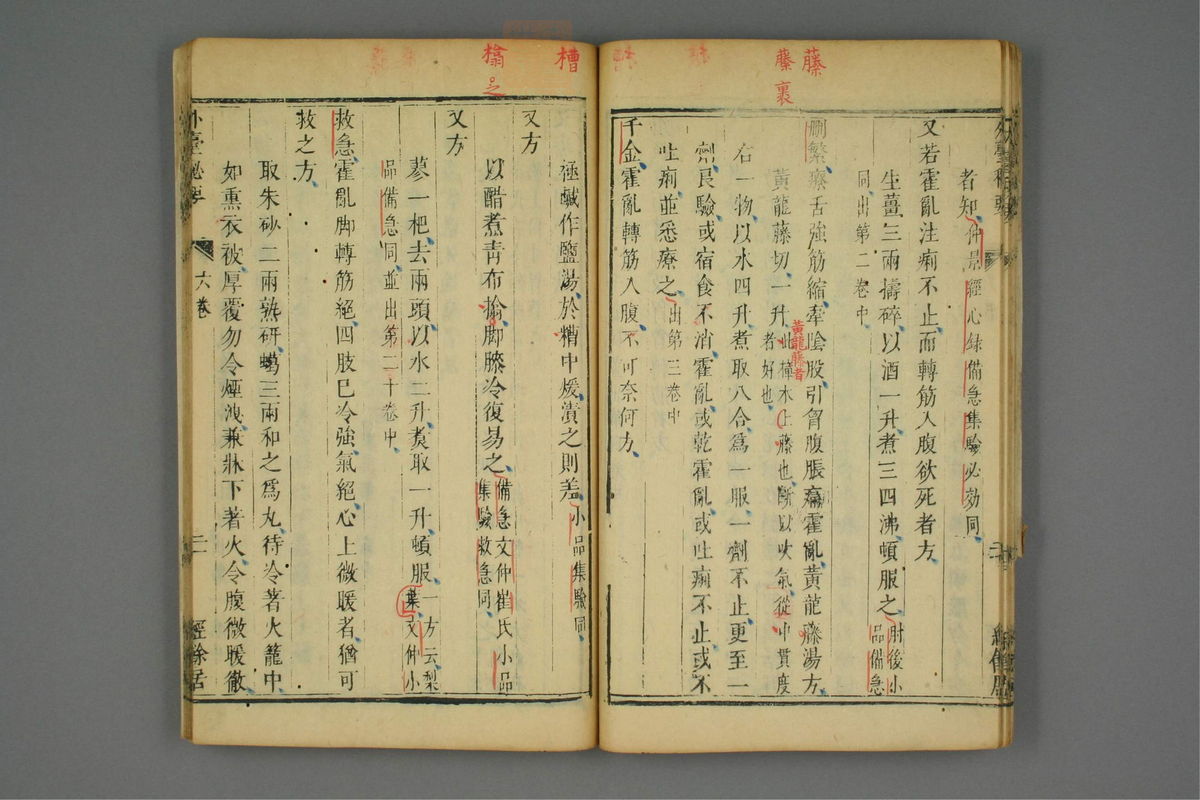 藤
藤裏
者知仲景經心録備急集驗必効同
又若霍亂注痢不止而轉筋入腹欲死者方
生薑三兩擣碎以酒一升煮三四沸頓服之肘後小品備急
同出第二卷中
刪繁療舌強筋縮牽陰股引胷腹脹痛霍亂黃龍藤湯方
黃龍藤切一升此樟木上藤也斷以吹氣從中貫度者好也
黃龍藤者
右一物以水四升煮取八合爲一服一劑不止更至一
劑良驗或宿食不消霍亂或乾霍亂或吐痢不止或不
吐痢並悉療之出第三卷中
千金霍亂轉筋入腹不可奈何方
槽
搨之
極鹹作鹽湯於糟中煖漬之則差小品集驗同
又方
以醋煮青布搨脚膝冷復易之備急文仲崔氏小品集驗救急同
又方
蓼一杷去兩頭以水二升煮取一升頓服一方云梨葉文仲小
品備急同並出第二十卷中
救急霍亂脚轉筋絕四肢已冷強氣絕心上微暖者猶可
救之方
取朱砂二兩熟研蠟三兩和之爲丸待冷著火籠中
如熏衣被厚覆勿令煙洩兼牀下著火令腹微暖徹
外臺秘要
六卷
二
經餘居